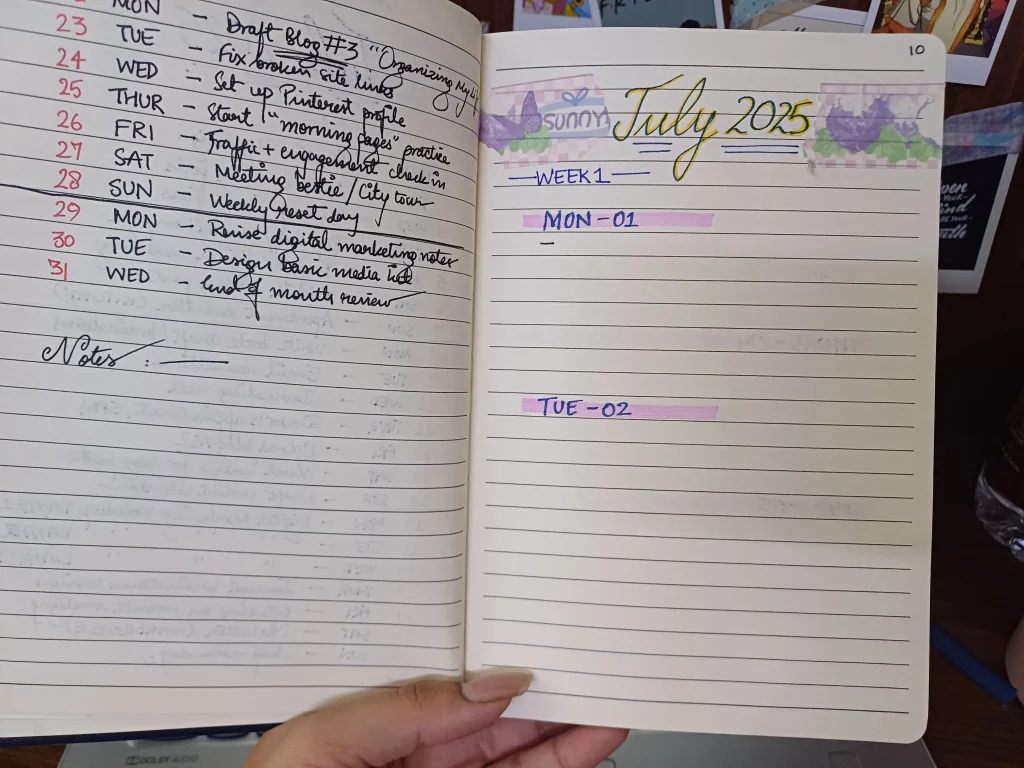 MON - Draft Blog #3 "Organizing My
23 TUE - Fix broken site links
24 WED - Set up Pinterest profile
25 THUR - Start "morning pages" practice
26 FRI - Traffic + engagement check in
27 SAT - Meeting bestie / City tour
28 SUN - Weekly reset day
29 MON - Revise digital marketing notes
30 TUE - Design basic media kit
31 WED - End of month review
Notes :
10
SUNNY
July 2025
WEEK 1
MON - 01
-
TUE - 02
DOLBY AUDIO